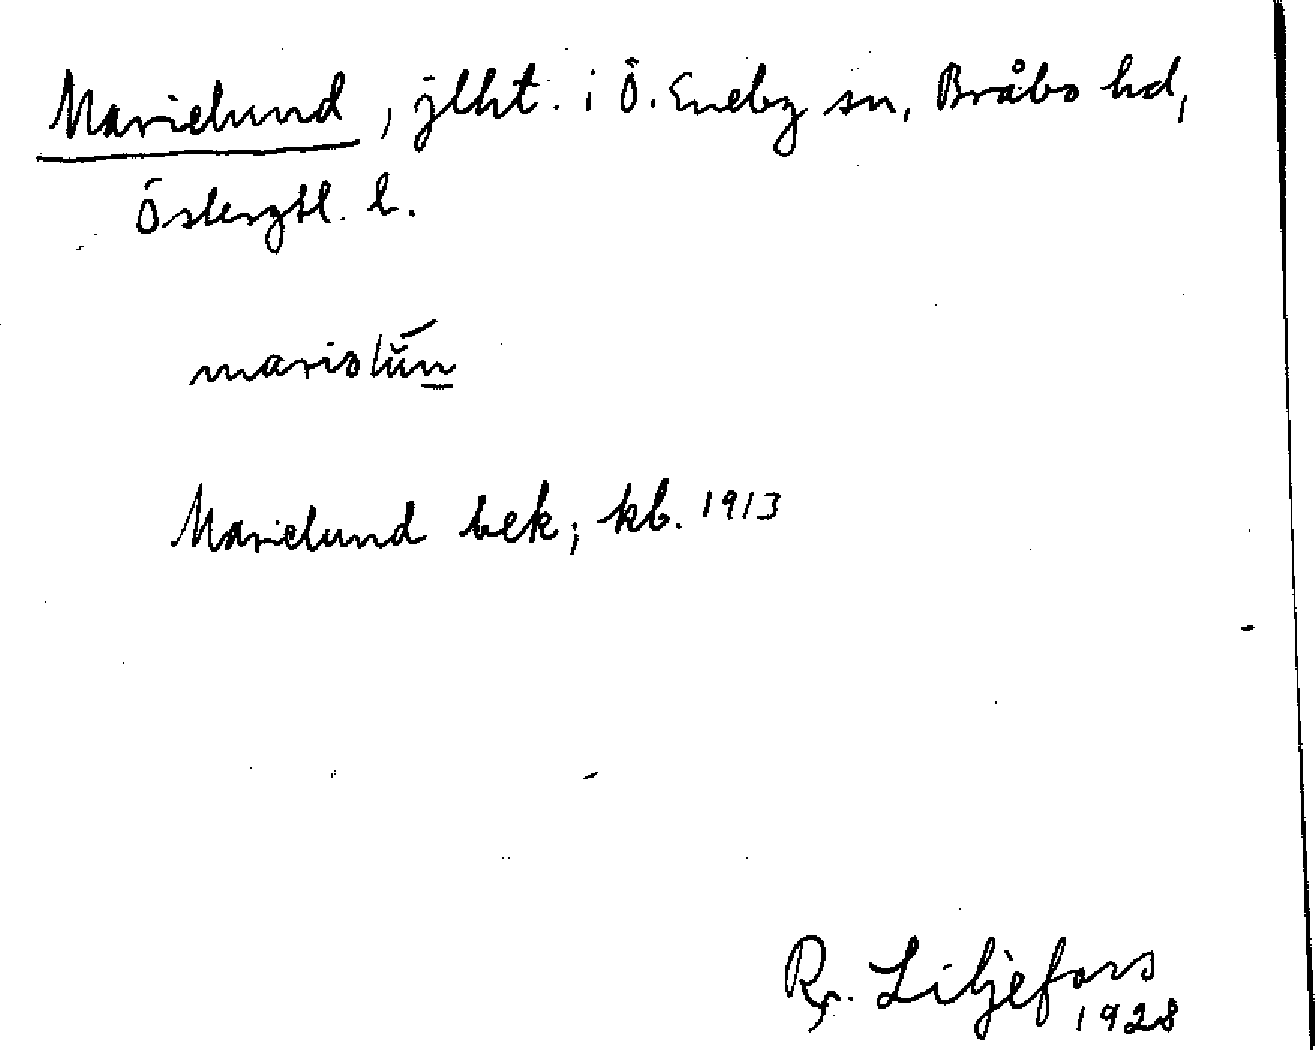 Marielund, jlht. i Ö. Eneby sn, Bråbo hd,
Östergtl. l.
Marielund bek; kb. 1913
Rr. Liljefors
1928